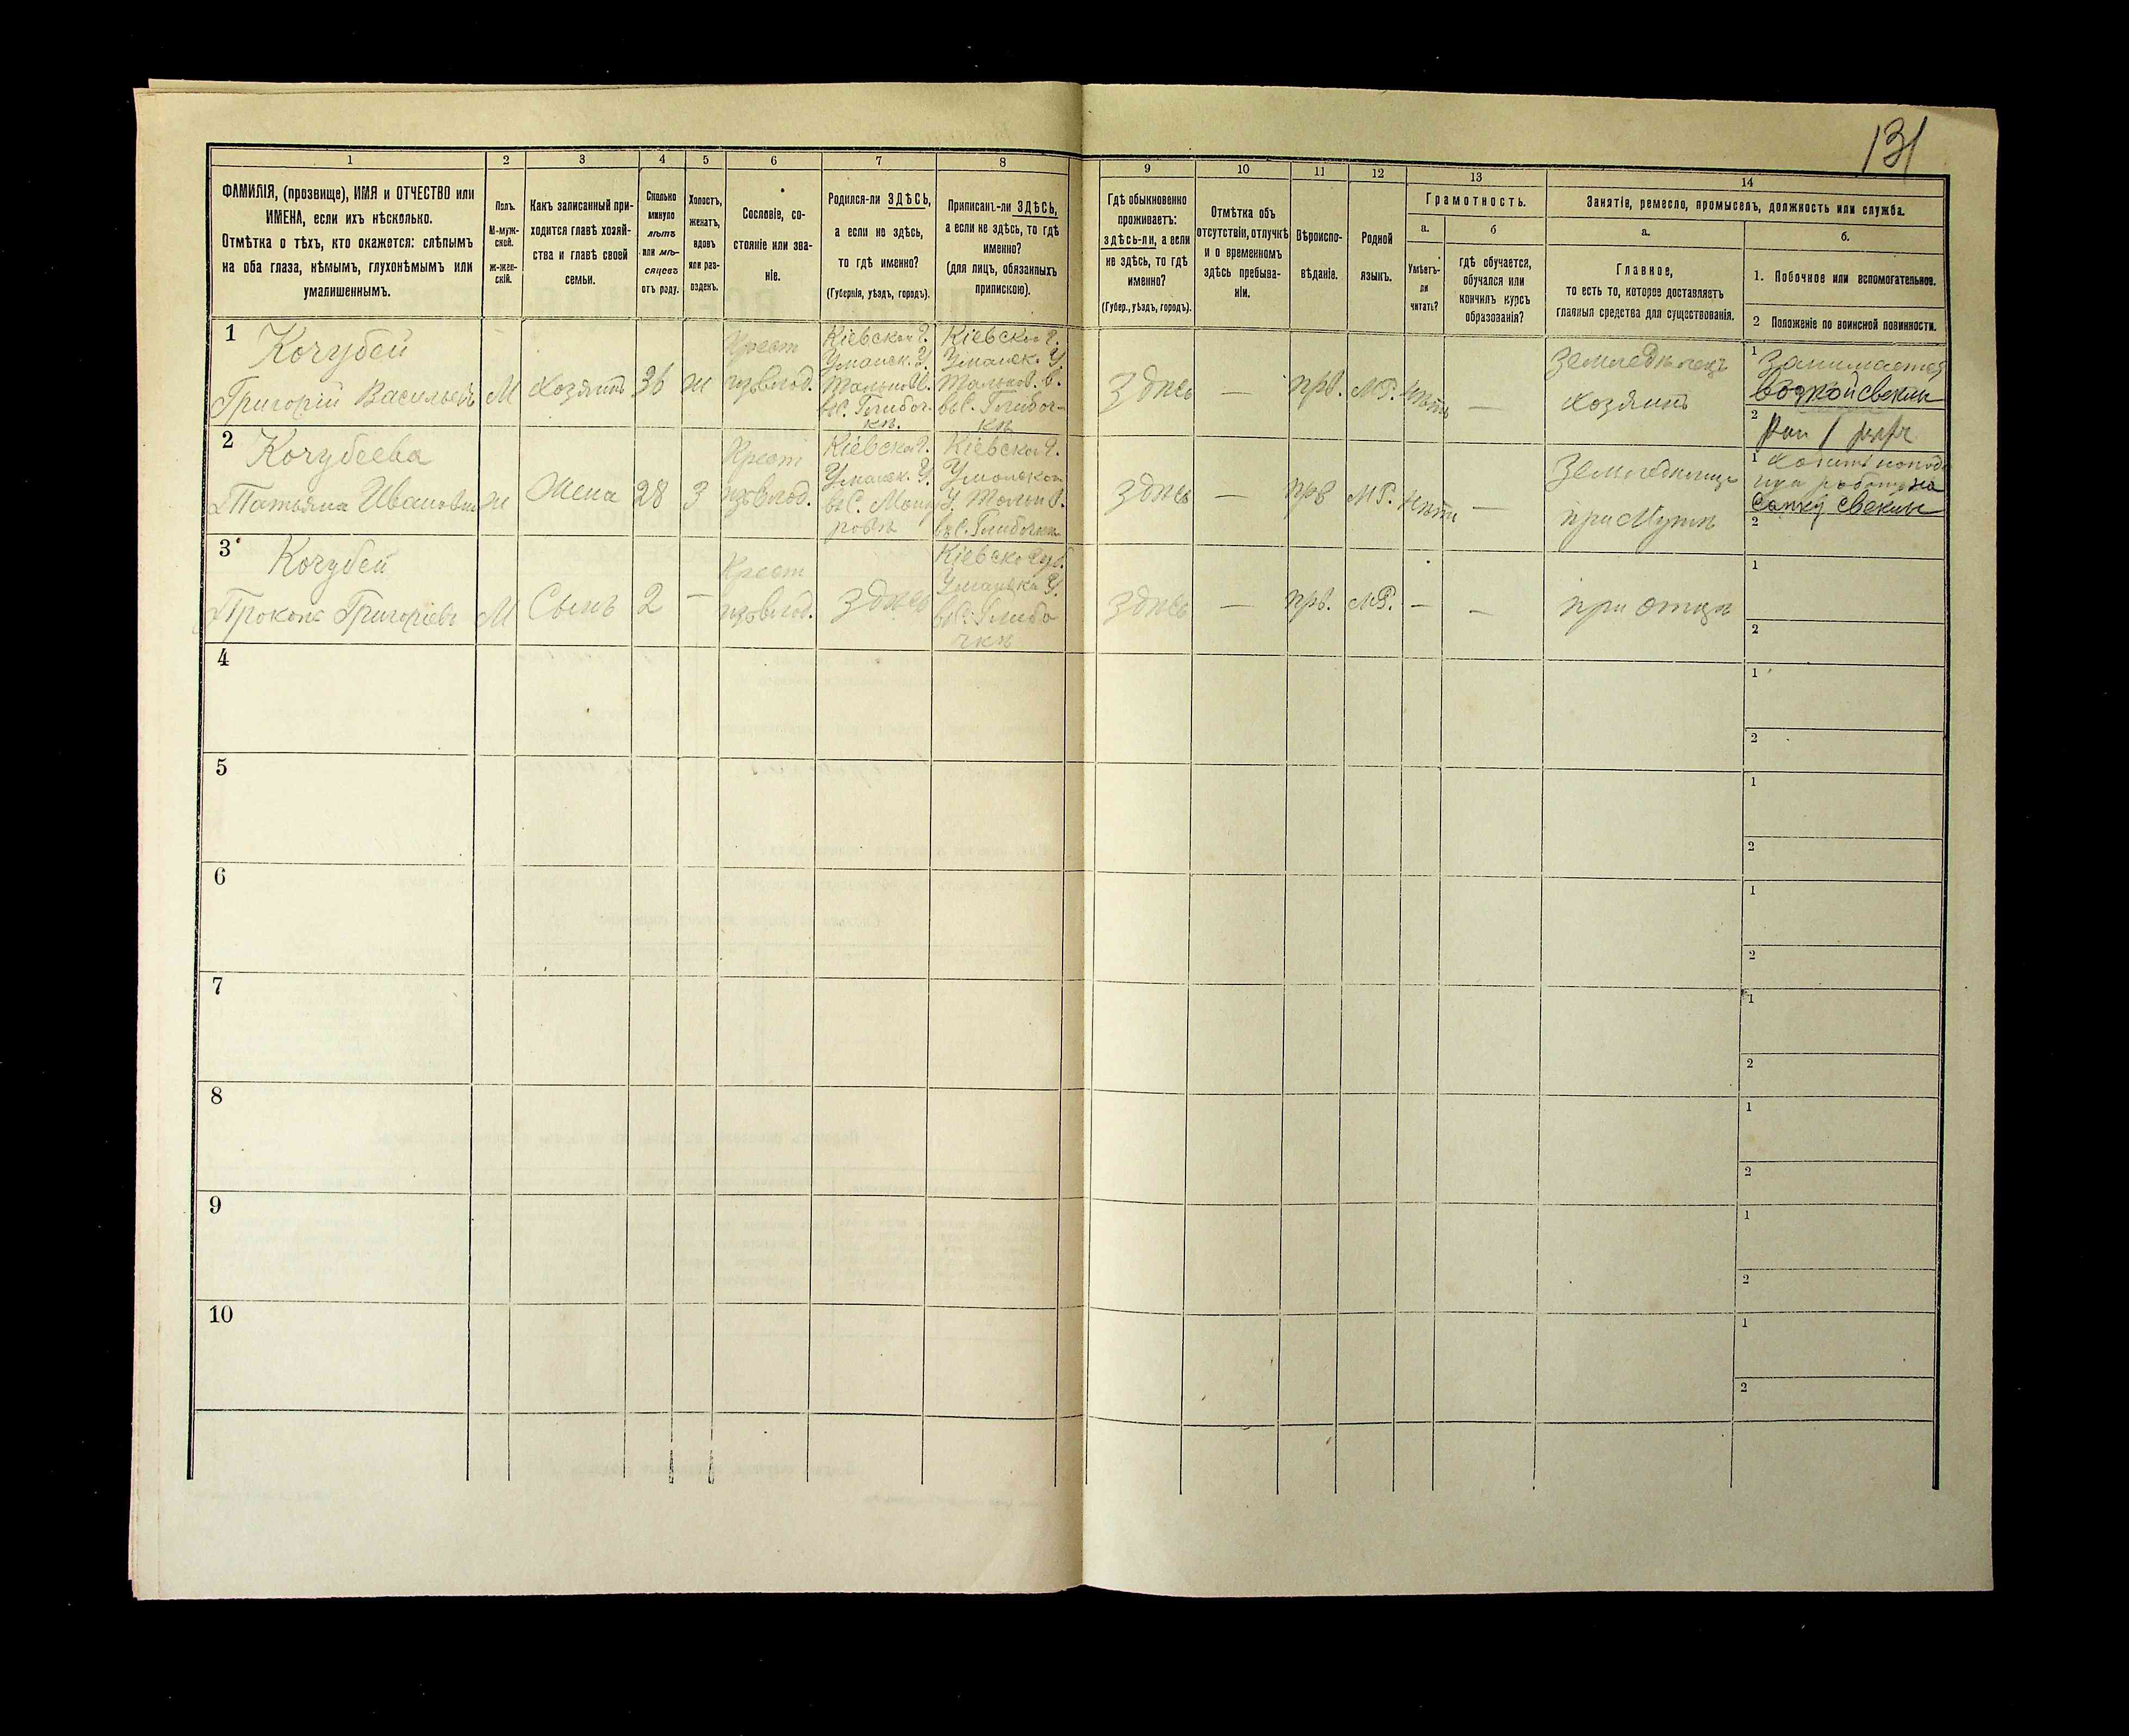 131
1 2 3 4 5 6 7 8 9 10 11 12 13 14
ФАМИЛІЯ, (прозвище), ИМЯ и ОТЧЕСТВО или
ИМЕНА, если ихъ нѣсколько.
Отмѣтка о тѣхъ, кто окажется: слѣпымъ
на оба глаза, нѣмымъ, глухонѣмымъ или
умалишеннымъ.
Полъ.
М-муж-
ской.
ж-жен-
скій.
Какъ записанный при-
ходится главѣ хозяй-
ства и главѣ своей
семьи.
Сколько
минуло
лѣтъ
или мѣ-
сяцевъ
отъ роду.
Холостъ,
женатъ,
вдовъ
или раз-
веденъ.
Сословіе, со-
стояніе или зва-
ніе.
Родился-ли ЗДѢСЬ,
а если не здѣсь,
то гдѣ именно?
(Губернія, уѣздъ, городъ).
Приписанъ-ли ЗДѢСЬ,
а если не здѣсь, то гдѣ
именно?
(для лицъ, обязанныхъ
припискою).
Гдѣ обыкновенно
проживаетъ:
здѣсь-ли, а если
не здѣсь, то гдѣ
именно?
(Губер., уѣздъ, городъ).
Отмѣтка объ
отсутствіи, отлучкѣ
и о временномъ
здѣсь пребыва-
ніи.
Вѣроиспо-
вѣданіе.
Родной
языкъ.
Грамотность.
а.
Умѣетъ-
ли
читать?
б
гдѣ обучается,
обучался или
кончилъ курсъ
образованія?
Занятіе, ремесло, промыселъ, должность или служба.
а.
Главное,
то есть то, которое доставляетъ
главныя средства для существованія.
б.
1. Побочное или вспомогательное.
2 Положеніе по воинской повинности.
1
Кочубей
Григорій Васильевъ
М
Хозяинъ
36
ж
Крест
изъ влод.
Кіевской г.
Уманск. У.
Тальнов В.
въ С. Глибоч-
кѣ.
Кіевской г.
Уманск. У.
Тальнов. В.
въ С. Глибоч-
кѣ
Здѣсь
—
прв.
М.Р.
Нѣтъ
—
Земледѣлецъ
Хозяинъ
1 Занимается
возкой свеклы
2
2
Кочубеева
Татьяна Ивановна
ж
Жена
28
З
Крест
изъ влод.
Кіевской г.
Уманск. У.
въ С.
Кіевской г.
Уманской
У. Тальн В.
въ С. Глибочкѣ
Здѣсь
—
прв
М.Р.
Нѣтъ
—
при Мужѣ
1
на
сапку свеклы
2
3
Кочубей
Прокопъ Григоріевъ
М
Сынъ
2
—
Крест
изъ влод.
Здѣсь
Кіевско губ.
Уманска У.
въ С. Глибо
чкѣ
Здѣсь
—
прв.
М.Р.
—
—
при отцѣ
1
2
4
1
2
5
1
2
6
1
2
7
1
2
8
1
2
9
1
2
10
1
2